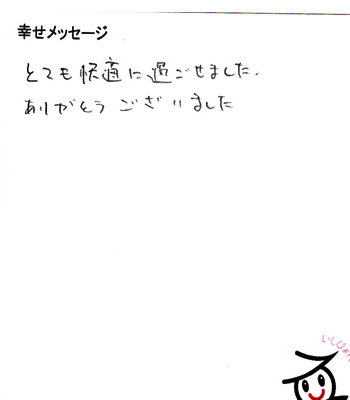 幸せメッセージ
とても快適に過ごせました.
ありがとうございました